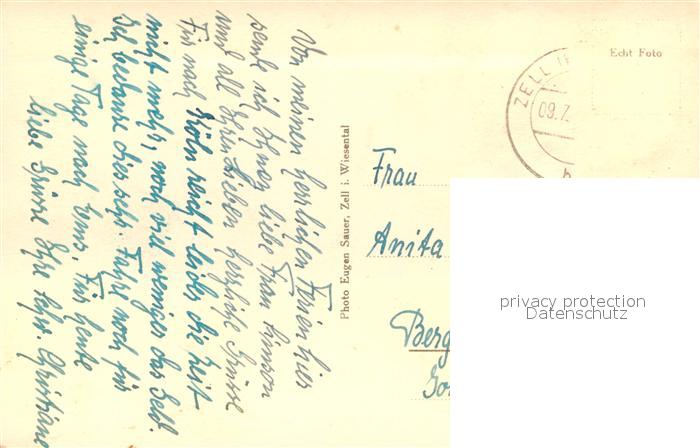 Von meinen herrlichen Ferien hier
sende ich Ihnen, liebe Frau Simson
und all Ihren Lieben herzliche Grüsse
Für nach Köln reicht leider die Zeit
nicht mehr, noch viel weniger das Geld.
Ich bedaure das sehr. Fahre noch für
einige Tage nach Für heute
liebe Grüsse Ihre Schw. Christiane
Photo Eugen Sauer, Zell i. Wiesental
Echt Foto
ZELL
09.7.
Frau
Anita
Berg
privacy protection
Datenschutz